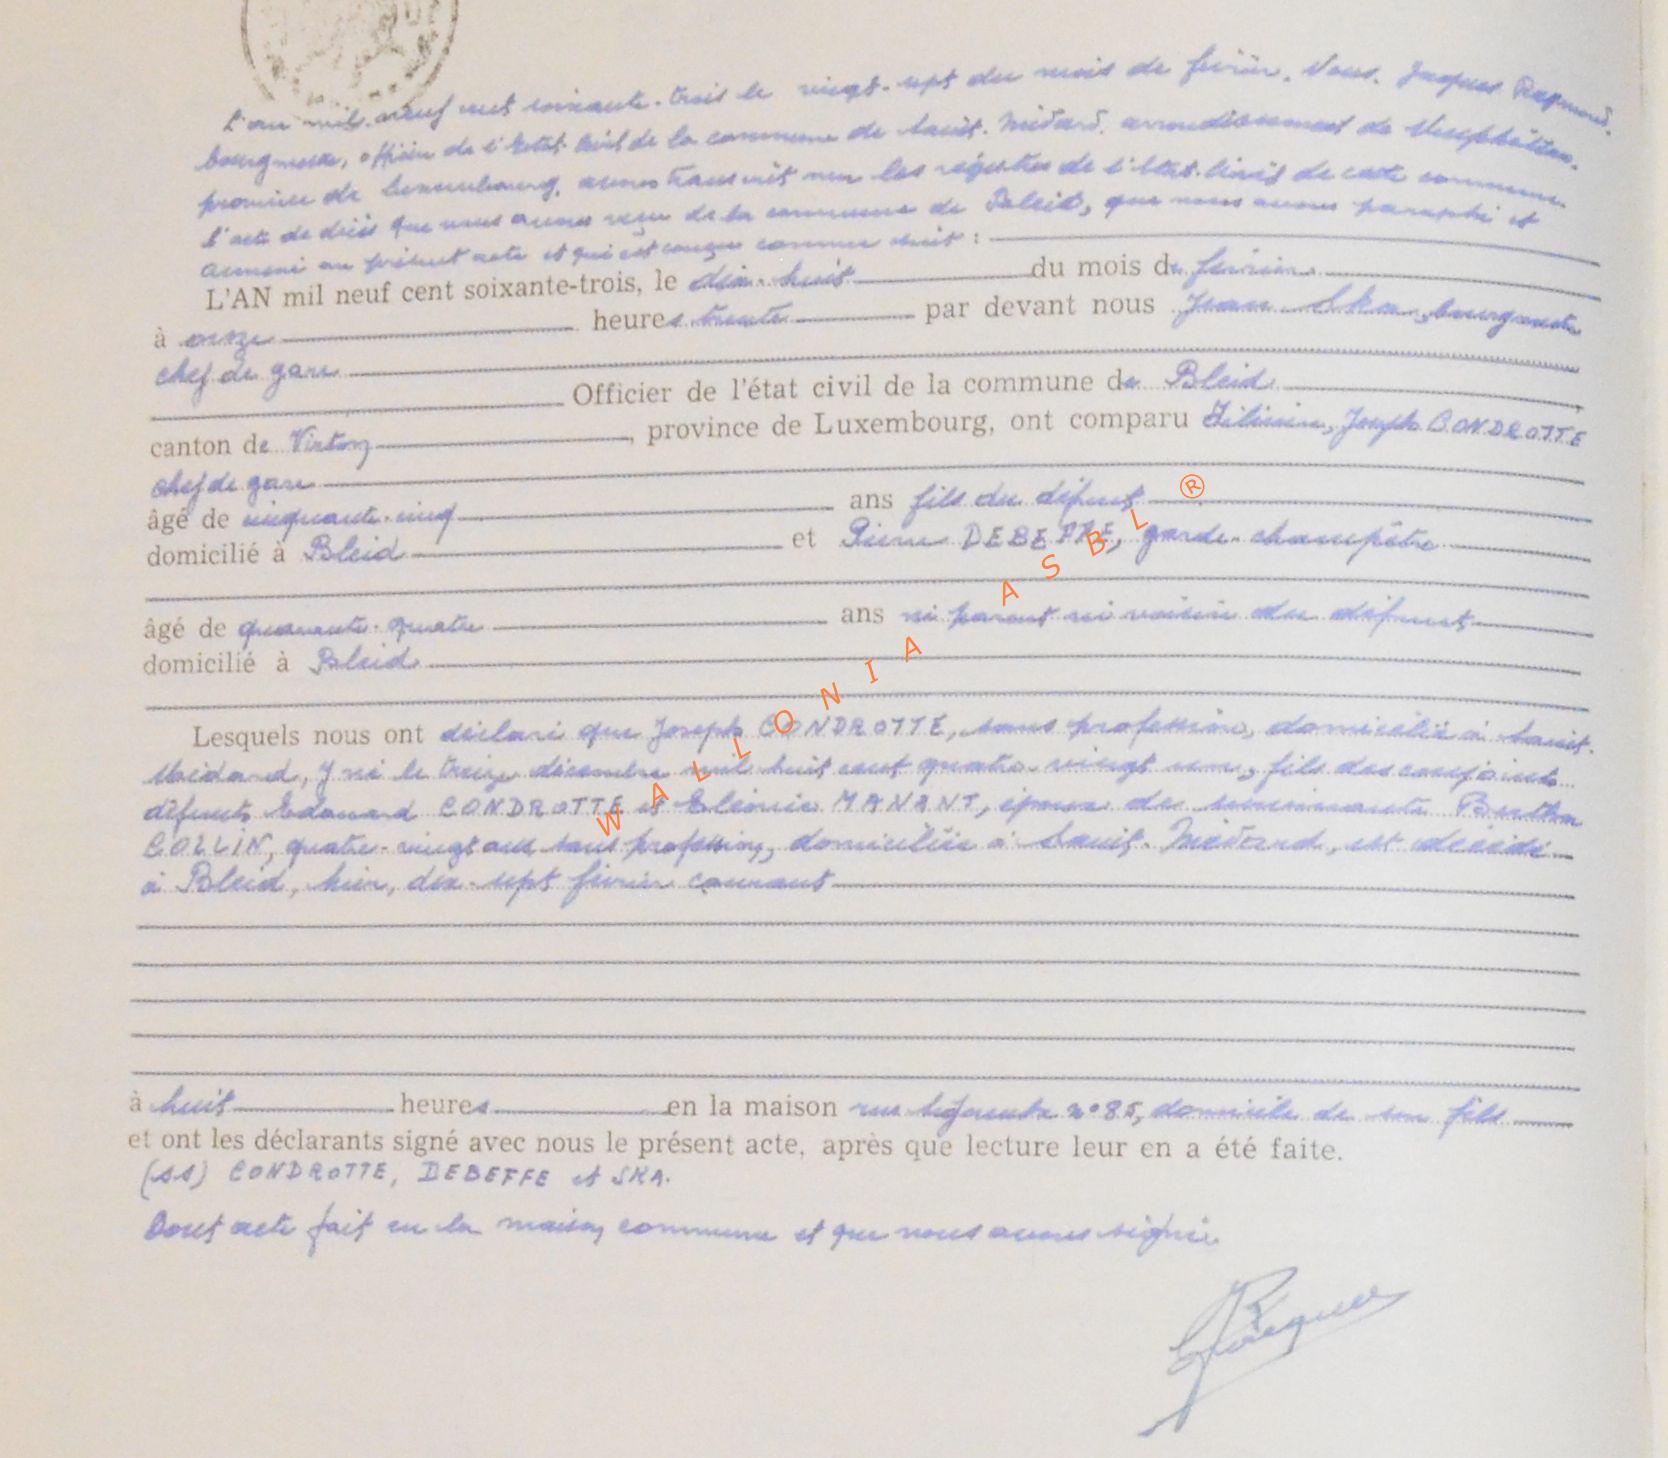 L'an mil neuf cent soixante-trois le vingt-sept du mois de février. Nous. Jacques Raymond.
bourgmestre, officier de l'Etat-Civil de la commune de Saint-Médard, arrondissement de Neufchâteau.
province de Luxembourg, avons transcrit sur les registres de l'Etat-Civil de cette commune.
l'acte de décès que nous avons reçu de la commune de Bleid, que nous avons paraphé et
annexé au présent acte et qui est conçu comme suit :
L'AN mil neuf cent soixante-trois, le dix-huit du mois de février
à onze heures trente par devant nous Jean Ska, bourgmestre
chef de gare
Officier de l'état civil de la commune de Bleid
canton de Virton, province de Luxembourg, ont comparu Joseph CONDROTTE
chef de gare
âgé de cinquante-cinq ans fils du défunt
domicilié à Bleid et Pierre DEBEFFE, garde-champêtre
âgé de quarante-quatre ans ni parent ni voisin du défunt
domicilié à Bleid
Lesquels nous ont déclaré que Joseph CONDROTTE, sans profession, domicilié à Saint-
Médard, y né le treize décembre mil huit cent quatre-vingt un, fils des conjoints
défunts Edouard CONDROTTE et Eléonie MANANT, époux de survivante Bertha
COLLIN, quatre-vingt ans sans profession, domiciliée à Saint-Médard, est décédé
à Bleid, hier, dix-sept février courant
à huit heures en la maison rue n° 85, domicile de son fils
et ont les déclarants signé avec nous le présent acte, après que lecture leur en a été faite.
(ss) CONDROTTE, DEBEFFE et SKA.
Dont acte fait en la maison commune et que nous avons signé.
Jacques
WALLONIA ASBL ®